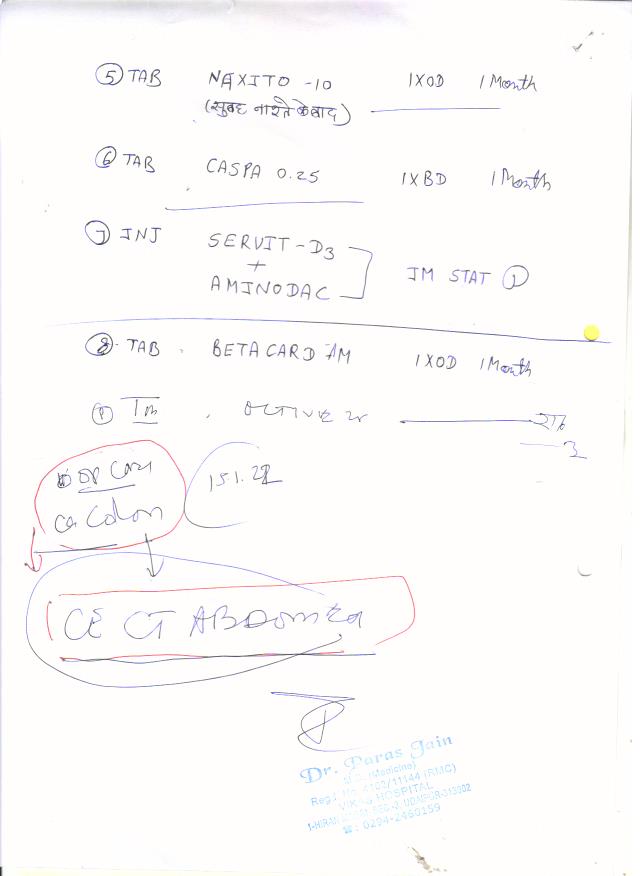 ⑤ TAB NEXITO -10 1XOD 1 Month
(सुबह नाश्ते के बाद)
⑥ TAB CASPA 0.25 1XBD 1 Month
⑦ INJ SERVIT-D3
+
AMINODAC IM STAT ①
⑧ TAB. BETACARD AM 1XOD 1 Month
Ca Colon
CE CT ABDOMEN
Dr. Paras Jain
M.D. (Medicine)
Reg. No. 4103/11144 (RMC)
VIKAS HOSPITAL
UDAIPUR-313002
☎: 0294-2460159